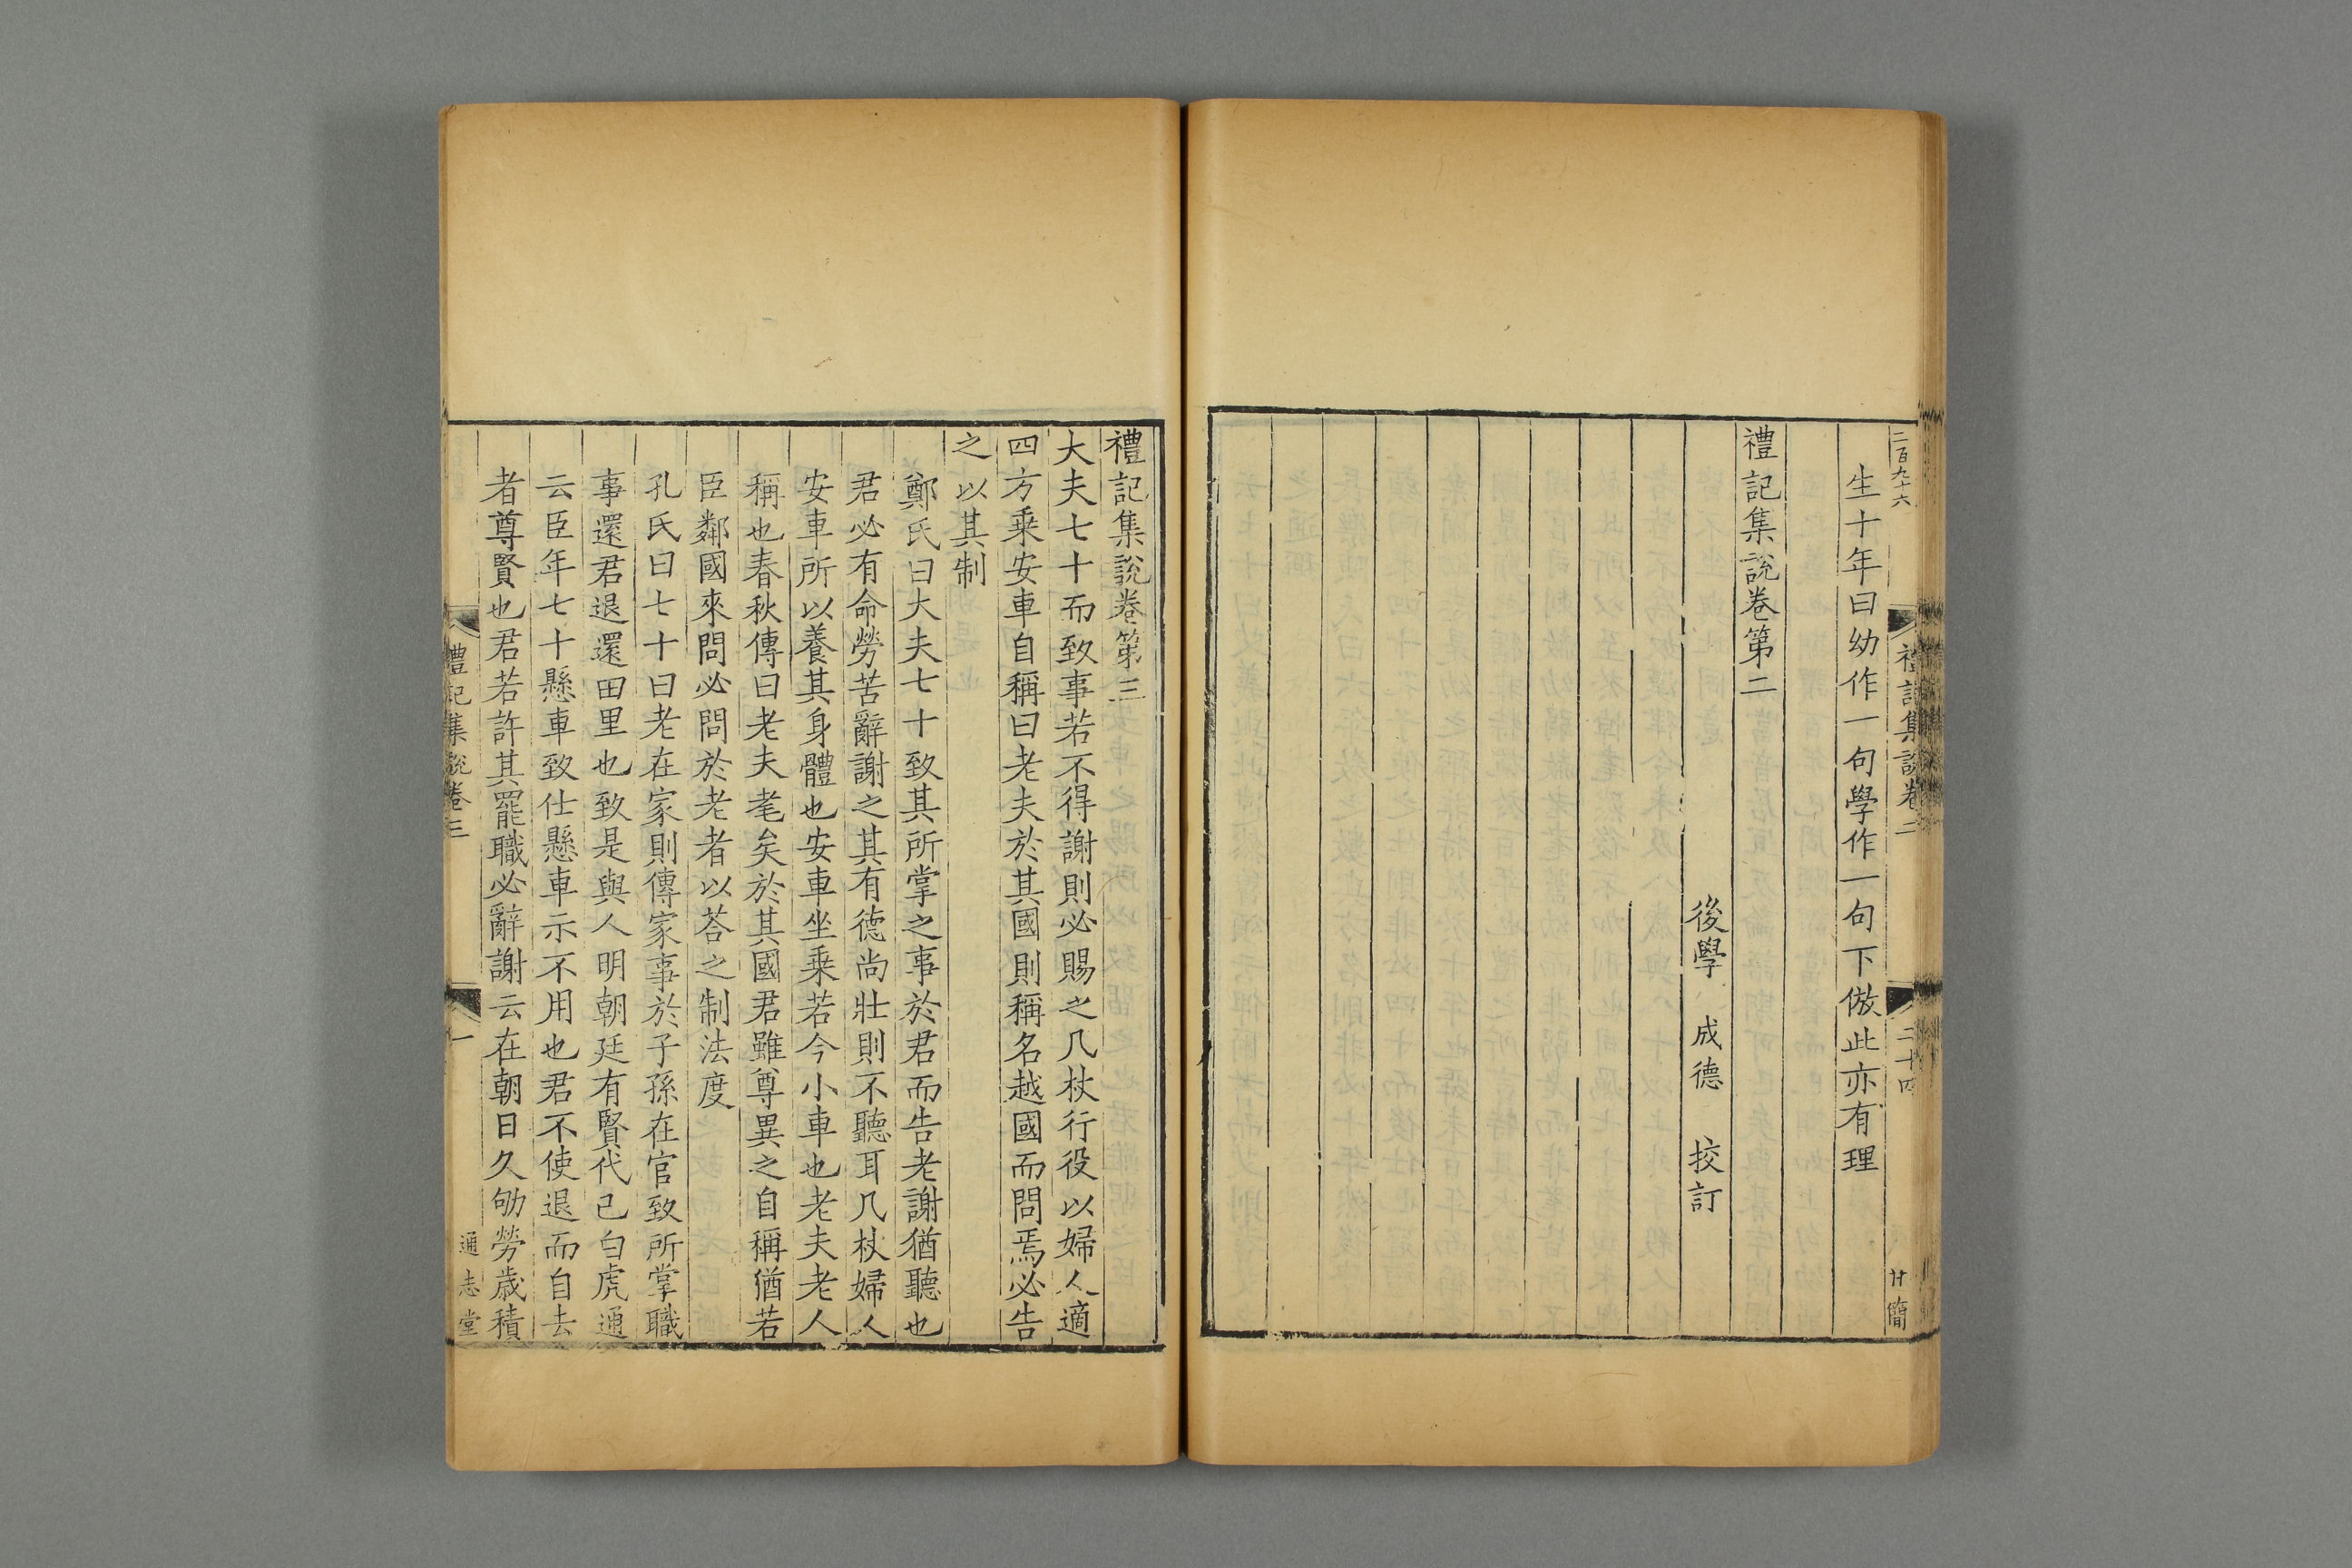 二百九十六
禮記集說卷二
二十四
廿簡
生十年曰幼作一句學作一句下倣此亦有理
禮記集說卷第二
後學 成德 挍訂
禮記集說卷第三
大夫七十而致事若不得謝則必賜之几杖行役以婦人適
四方乗安車自稱曰老夫於其國則稱名越國而問焉必告
之以其制
鄭氏曰大夫七十致其所掌之事於君而告老謝猶聽也
君必有命勞苦辭謝之其有德尚壯則不聽耳几杖婦人
安車所以養其身體也安車坐乗若今小車也老夫老人
稱也春秋傳曰老夫耄矣於其國君雖尊異之自稱猶若
臣鄰國來問必問於老者以荅之制法度
孔氏曰七十曰老在家則傳家事於子孫在官致所掌職
事還君退還田里也致是與人明朝廷有賢代己白虎通
云臣年七十懸車致仕懸車示不用也君不使退而自去
者尊賢也君若許其罷職必辭謝云在朝日久劬勞歳積
禮記集說卷三
一
通志堂